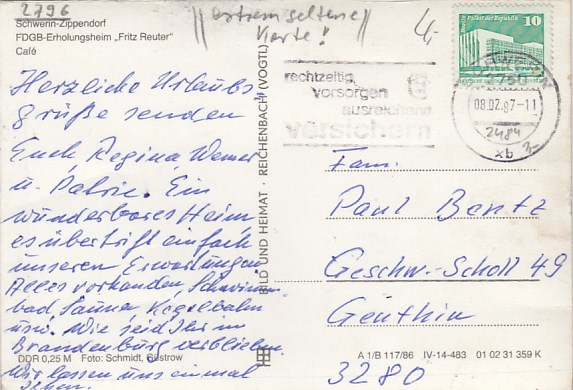 2796
Schwerin-Zippendorf
FDGB-Erholungsheim „Fritz Reuter"
Café
extrem seltene
Karte!
4,-
Palast der Republik 10
rechtzeitig
vorsorgen
ausreichend
versichern
2750
08.02.87-11
xb
2484
Herzliche Urlaubs
grüße senden
Euch Regina Werner
u. Ein
wunderbares Heim
es übertrift einfach
unseren Erwartungen.
Alles vorhanden, Schwimm
bad, Sauna, Kegelbahn
usw. Wie seid Ihr in
Brandenburg verblieben.
Wir lassen uns einmal
sehen.
BILD UND HEIMAT · REICHENBACH (VOGTL)
Fam.
Paul Bentz
Geschw.-Scholl 49
Genthin
3280
DDR 0,25 M Foto: Schmidt, Güstrow
A 1/B 117/86 IV-14-483 01 02 31 359 K